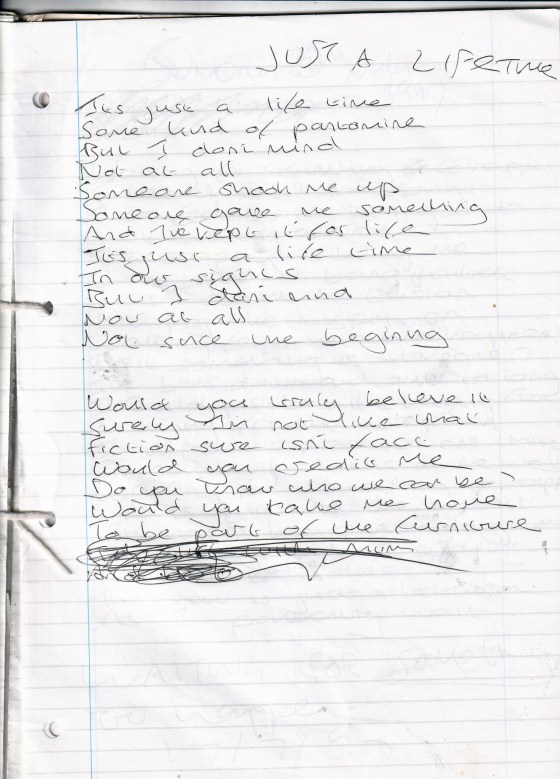 JUST A LIFETIME
Its just a life time
Some kind of pantomine
But I dont mind
Not at all
Someone shook me up
Someone gave me something
And I've kept it for life
It's just a life time
In our sights
But I don't mind
Not at all
Not since the beginng
Would you truly believe it
Surely Im not like that
Fiction sure isn't fact
Would you credit me
Do you know who we can be
Would you take me home
To be part of the furniture